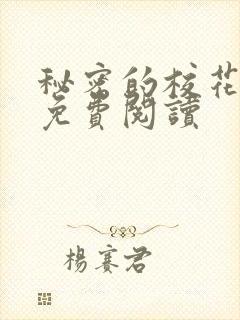 秘密的校花
免費閱讀
楊賽君